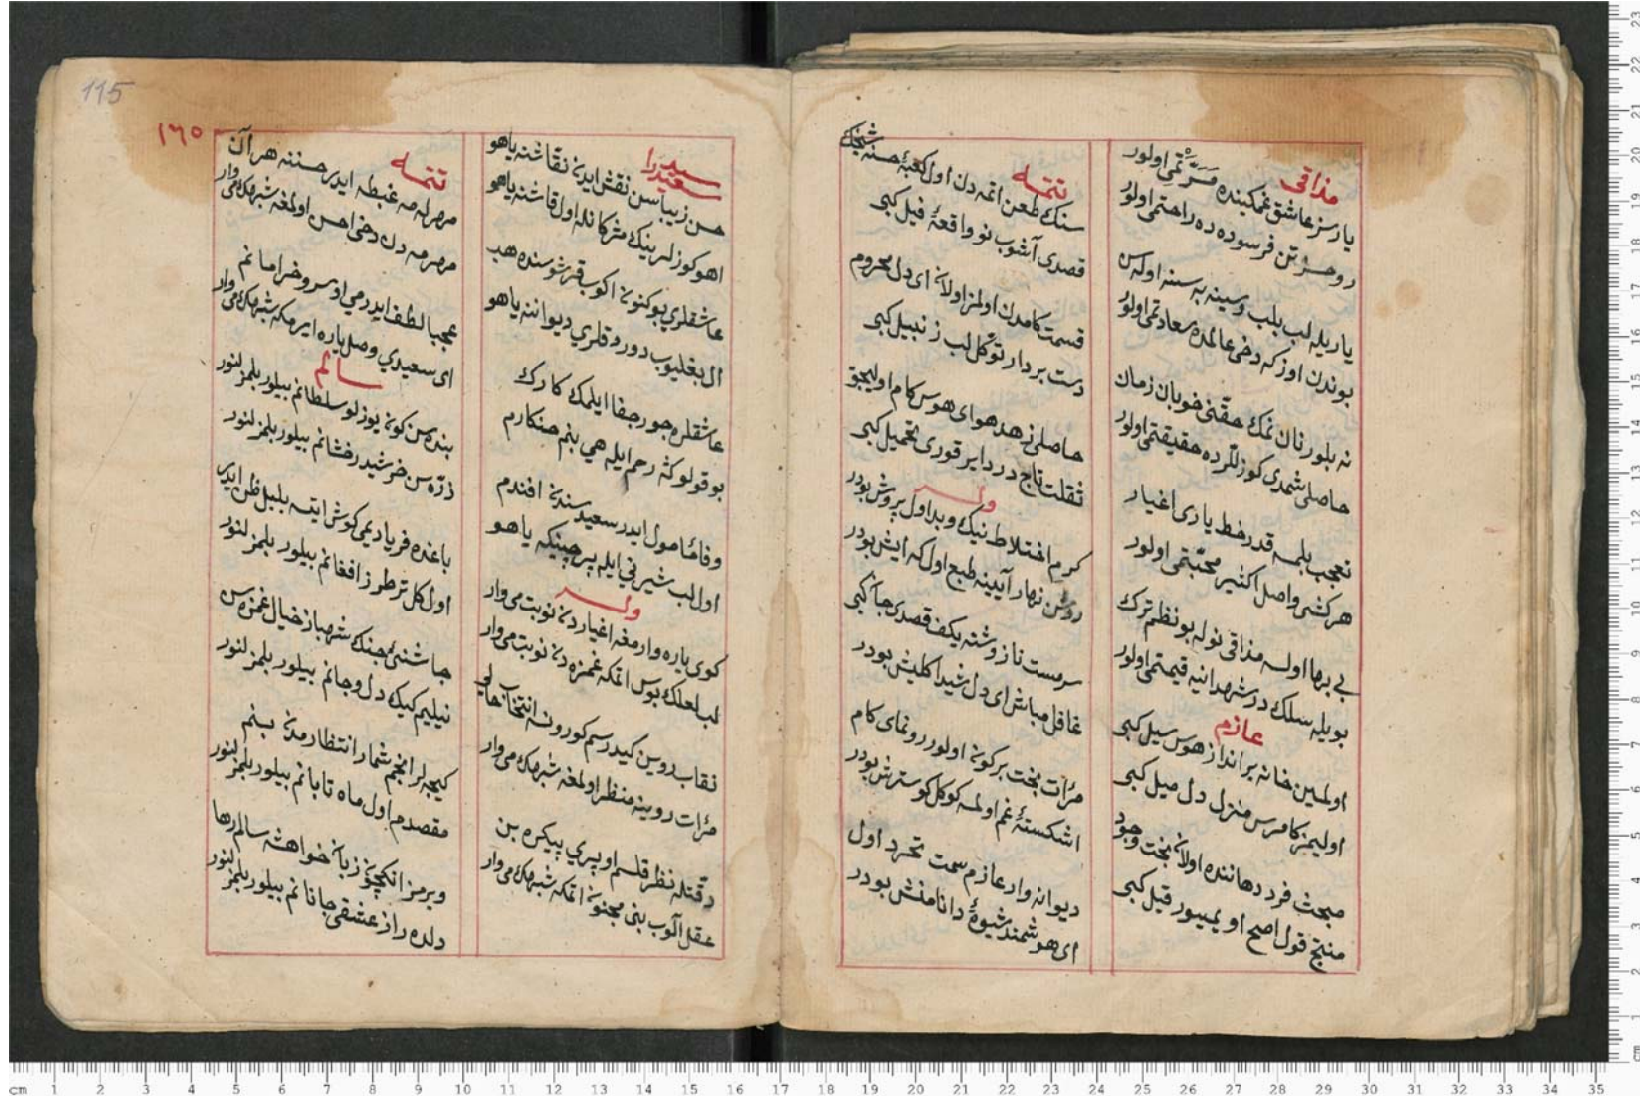 مذاقی
یارسز عاشق غمکینده مسرتمی اولور
روحسز تن فرسوده ده راحتمی اولور
یاریله لب بلب وسینه به سینه اوله سن
بوندن اوزکه دخی عالمده سعادتمی اولور
نه بلور نان نمک حقنی خوبان زمان
حاصلی شمدی کوزللرده حقیقتمی اولور
تعجب بلمه قدر خط یاری اغیار
هر کشی واصل اکثیر محبتمی اولور
بی بها اولسه مذاقی نوله بو نظم ترک
بویله سلک در شهدانیه قیمتمی اولور
عازم
اولمین خانه برانداز هوس سیل کبی
اولیمز کامرس منزل دل میل کبی
مبحث فرد دهاننده اولان بخت وجود
منتج قول اصح اویمیور قیل کبی
تتمه
سنک طعن اتمه دن اول کعبهٔ حسنه
قصدی آشوب نو واقعهٔ فیل کبی
قسمت کامدن اولمز اولان ای دل محروم
دست بردار توکل لب زنبیل کبی
حاصلی زهد هوای هوس کام اولیجق
ثقلت تاج در دایر قوری تحمیل کبی
وله
کرم اختلاط نیک وبد اول پروش بودر
روشن نهار آیینه طبع اول که ایش بودر
سرمست ناز وشنه بکف قصدی جان کبی
غافل مباش ای دل شیدا کلیش بودر
مرآت بخت برکون اولور رونمای کام
اشکستهٔ غم اولمه کوکل کوسترش بودر
دیوانه وار عازم سمت تجرد اول
ای هوشمند شیوهٔ دانا منش بودر
115
١٦٥
سعیدرا
حسن زیباسن نقش ایدن نقاشنه یاهو
اهو کوزلرینک مژکانله اول قاشنه یاهو
عاشقلری بوکون اکوب قرشوسنده هب
ال بغلیوب دورد قلری دیواننه یاهو
عاشقلره جور جفا ایلمک کارک
بو قولوکه رحم ایله هی بنم خنکارم
وفا مأمول ایدر سعید سندن افندم
اول لب شیرنی ایله پرچینکه یاهو
وله
کوی یاره وارمغه اغیاردن نوبت می وار
لب لعلک بوس اتمکه غمزه دن نوبت می وار
نقاب روین کیدرسم کورونه
مرآت روینه منظر اولمغه شبهه ک می وار
دقتله نظر قلسم او پری پیکره بن
عقل آلوب بنی مجنون اتمکه شبهه ک می وار
تتمه
مهر له مه غبطه ایدر حسننه هر آن
مهر مه دن دخی احسن اولمغه شبهه ک می وار
عجبا لطف ایدرمی او سرو خرامانم
ای سعیدی وصل یاره ایرمکه شبهه ک می وار
سالم
بنده سن کون یوزلو سلطانم بیلور بلمزلنور
ذره سن خرشید رخشانم بیلور بلمزلنور
باغنده فریادیمی کوش ایتسه بلبل ظن ایدر
اول کل تر طرز افغانم بیلور بلمزلنور
جاشنئ جنک شهباز خیال غمزه سن
نیلیم کیک دل وجانم بیلور بلمزلنور
کیجه لر انجم شمار انتظارمدن بنم
مقصدم اول ماه تابانم بیلور بلمزلنور
ویرمز انکچون زبان خواهشه سالم رها
دلده راز عشقی جانانم بیلور بلمزلنور